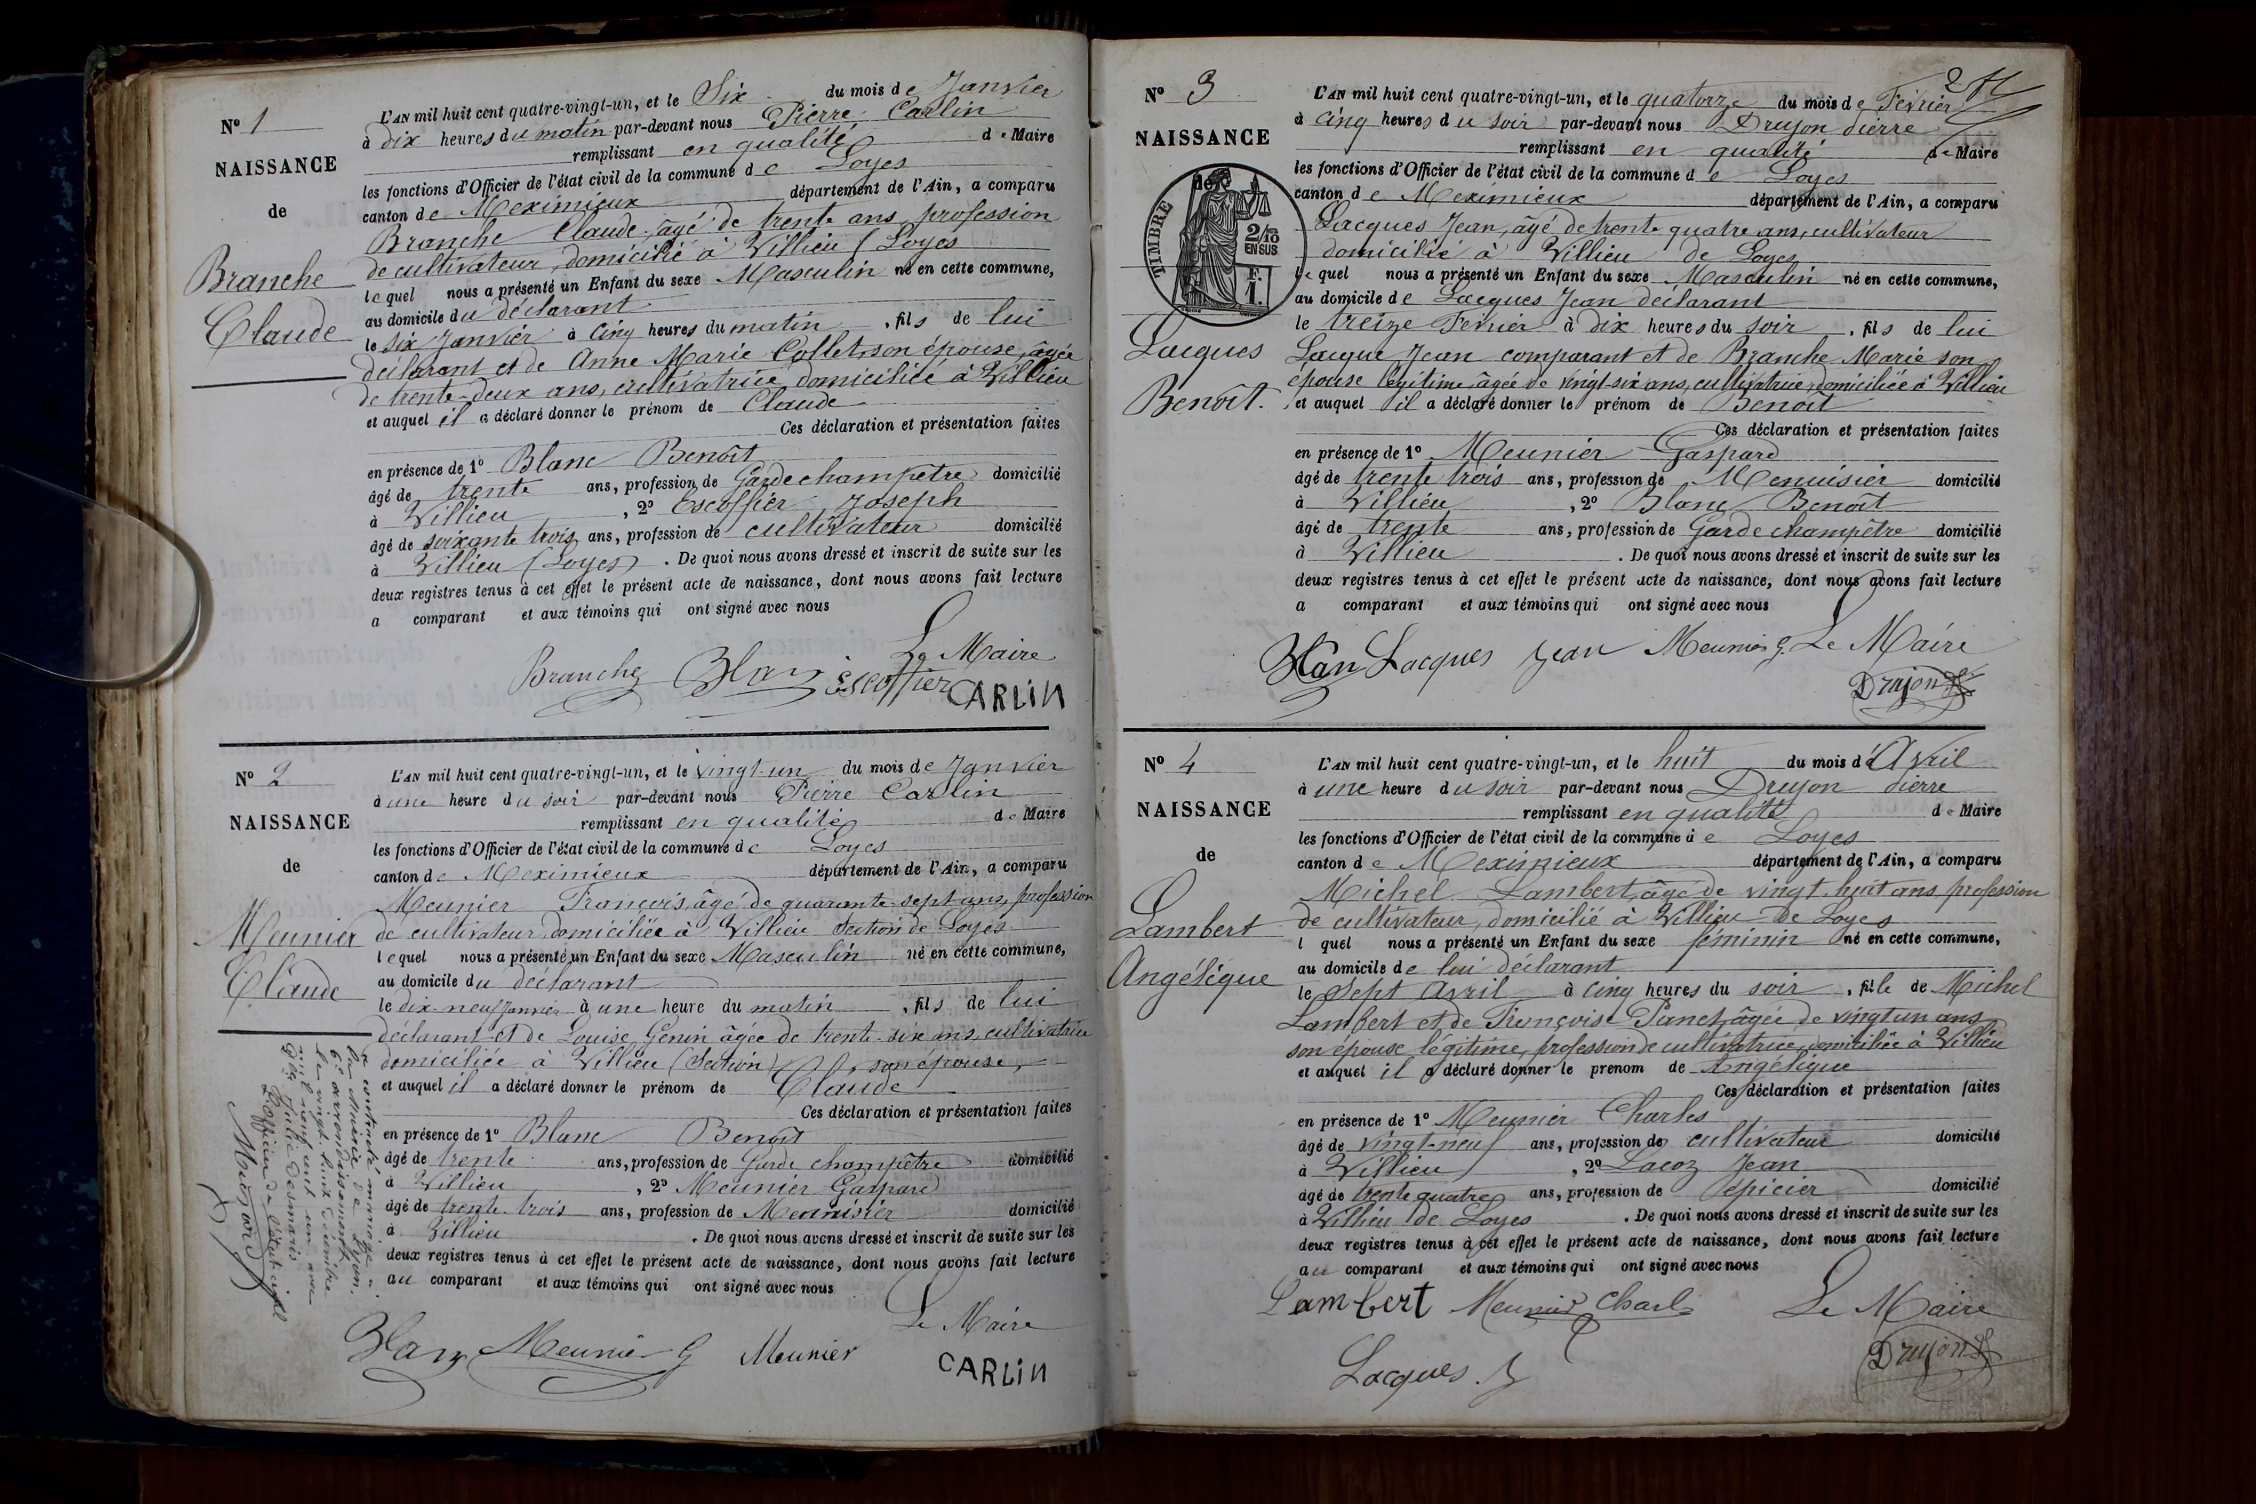 N° 1
NAISSANCE
de
Branche
Claude
L'AN mil huit cent quatre-vingt-un, et le Six du mois de Janvier
à dix heures du matin par-devant nous Pierre Carlin
remplissant en qualité de Maire
les fonctions d'Officier de l'état civil de la commune de Loyes
canton de Meximieux département de l'Ain, a comparu
Branche Claude âgé de trente ans, profession
de cultivateur, domicilié à Villieu (Loyes
lequel nous a présenté un Enfant du sexe Masculin né en cette commune,
au domicile du déclarant
le six Janvier à cinq heures du matin, fils de lui
déclarant et de Anne Marie Collet, son épouse, âgée
de trente-deux ans, cultivatrice, domiciliée à Villieu
et auquel il a déclaré donner le prénom de Claude
Ces déclaration et présentation faites
en présence de 1° Blanc Benoît
âgé de trente ans, profession de Garde champêtre domicilié
à Villieu, 2° Escoffier Joseph
âgé de soixante trois ans, profession de cultivateur domicilié
à Villieu (Loyes). De quoi nous avons dressé et inscrit de suite sur les
deux registres tenus à cet effet le présent acte de naissance, dont nous avons fait lecture
a comparant et aux témoins qui ont signé avec nous
Le Maire
Branche Blanc Escoffier CARLIN
N° 2
NAISSANCE
de
Meunier
Claude
L'AN mil huit cent quatre-vingt-un, et le vingt-un du mois de Janvier
à une heure du soir par-devant nous Pierre Carlin
remplissant en qualité de Maire
les fonctions d'Officier de l'état civil de la commune de Loyes
canton de Meximieux département de l'Ain, a comparu
Meunier François, âgé de quarante-sept ans, profession
de cultivateur domiciliée à Villieu Section de Loyes
lequel nous a présenté un Enfant du sexe Masculin né en cette commune,
au domicile du déclarant
le dix-neuf Janvier à une heure du matin, fils de lui
déclarant et de Louise Genin âgée de trente-six ans, cultivatrice
domiciliée à Villieu (Section), son épouse,
et auquel il a déclaré donner le prénom de Claude
Ces déclaration et présentation faites
en présence de 1° Blanc Benoît
âgé de trente ans, profession de Garde champêtre domicilié
à Villieu, 2° Meunier Gaspard
âgé de trente trois ans, profession de Menuisier domicilié
à Villieu. De quoi nous avons dressé et inscrit de suite sur les
deux registres tenus à cet effet le présent acte de naissance, dont nous avons fait lecture
au comparant et aux témoins qui ont signé avec nous
Le Maire
Blanc Meunier G Meunier CARLIN
a contracté mariage à
la Mairie de Lyon
6e arrondissement
le vingt huit Décembre
mil neuf cent un avec
Julie Desmaris
L'officier de l'état civil
N° 3
NAISSANCE
de
TIMBRE
2/10
EN SUS
F.
1.
Lacques
Benoît.
2
L'AN mil huit cent quatre-vingt-un, et le quatorze du mois de Février
à cinq heures du soir par-devant nous Drujon Pierre
remplissant en qualité de Maire
les fonctions d'Officier de l'état civil de la commune de Loyes
canton de Meximieux département de l'Ain, a comparu
Lacques Jean, âgé de trente quatre ans, cultivateur
domicilié à Villieu de Loyes
le quel nous a présenté un Enfant du sexe Masculin né en cette commune,
au domicile de Lacques Jean déclarant
le treize Février à dix heures du soir, fils de lui
Lacque Jean comparant et de Branche Marie son
épouse légitime âgée de vingt-six ans, cultivatrice, domiciliée à Villieu
et auquel il a déclaré donner le prénom de Benoît
Ces déclaration et présentation faites
en présence de 1° Meunier Gaspard
âgé de trente trois ans, profession de Menuisier domicilié
à Villieu, 2° Blanc Benoît
âgé de trente ans, profession de Garde champêtre domicilié
à Villieu. De quoi nous avons dressé et inscrit de suite sur les
deux registres tenus à cet effet le présent acte de naissance, dont nous avons fait lecture
a comparant et aux témoins qui ont signé avec nous
Blan Lacques Jean Meunier G. Le Maire
Drujon
N° 4
NAISSANCE
de
Lambert
Angélique
L'AN mil huit cent quatre-vingt-un, et le huit du mois d'Avril
à une heure du soir par-devant nous Drujon Pierre
remplissant en qualité de Maire
les fonctions d'Officier de l'état civil de la commune de Loyes
canton de Meximieux département de l'Ain, a comparu
Michel Lambert, âgé de vingt huit ans profession
de cultivateur, domicilié à Villieu de Loyes
l quel nous a présenté un Enfant du sexe féminin né en cette commune,
au domicile de lui déclarant
le Sept Avril à cinq heures du soir, fille de Michel
Lambert et de Françoise Panet, âgée de vingt un ans
son épouse légitime, profession de cultivatrice, domiciliée à Villieu
et auquel il a déclaré donner le prenom de Angélique
Ces déclaration et présentation faites
en présence de 1° Meunier Charles
âgé de vingt-neuf ans, profession de cultivateur domicilié
à Villieu, 2° Lacoz Jean
âgé de trente quatre ans, profession de épicier domicilié
à Villieu de Loyes. De quoi nous avons dressé et inscrit de suite sur les
deux registres tenus à cet effet le présent acte de naissance, dont nous avons fait lecture
au comparant et aux témoins qui ont signé avec nous
Lambert Meunier Charles Le Maire
Lacques. J Drujon